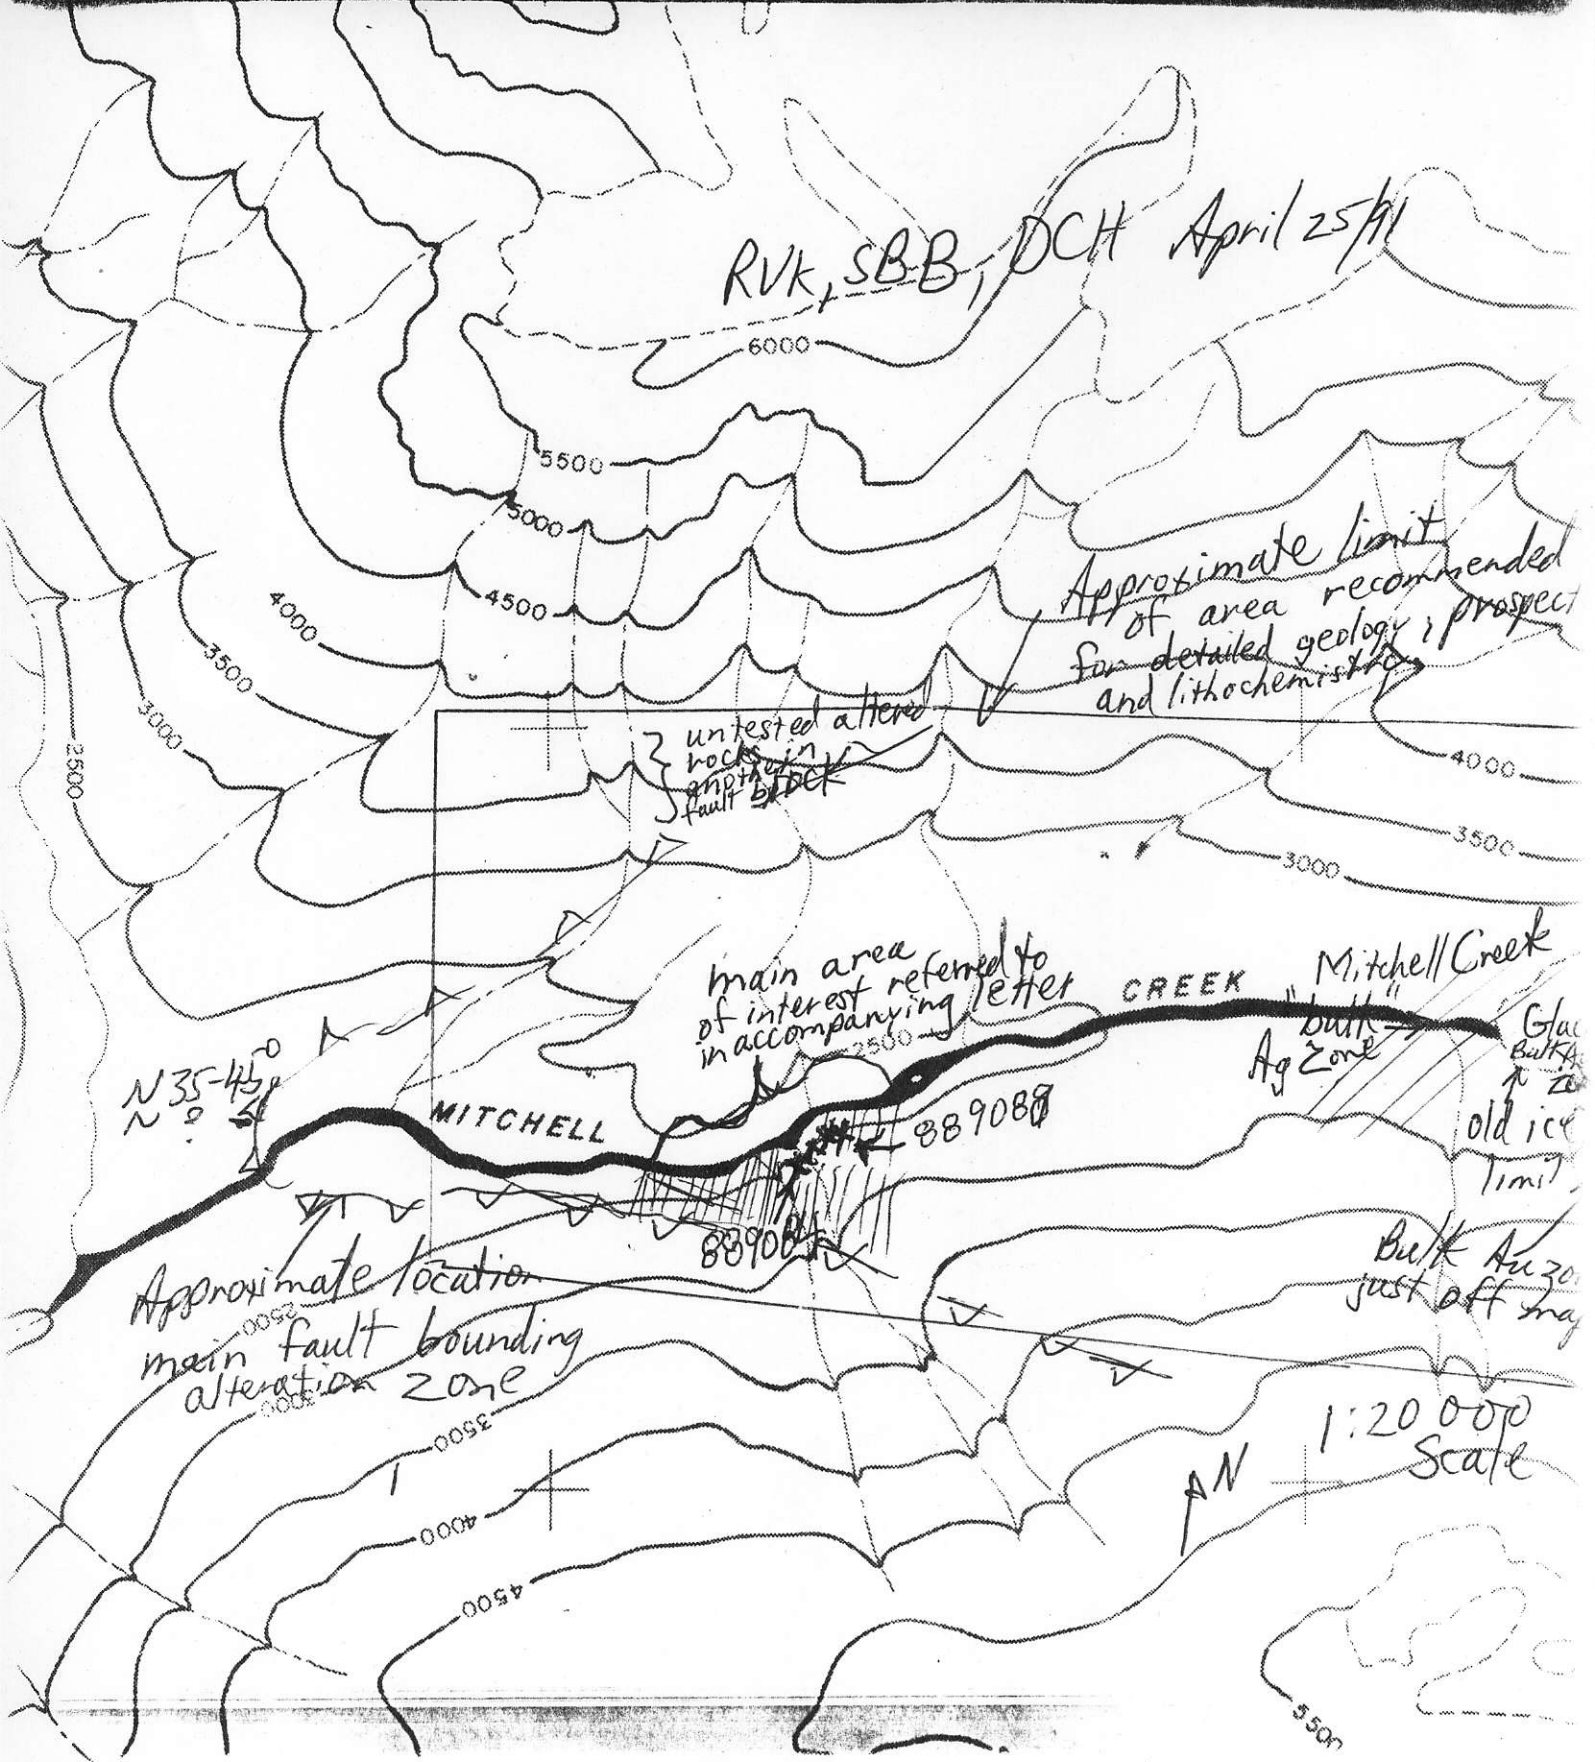 RVK, SBB, DCH April 25/91
6000
5500
5000
4500
4000
3500
3000
2500
Approximate limit
of area recommended
for detailed geology, prospect
and lithochemistry
untested altered
rocks in
another
fault block
4000
3500
3000
main area
of interest referred to
in accompanying letter
2500
CREEK
Mitchell Creek
"bulk"
Ag Zone
old ice
limit
N 35-45°
MITCHELL
889088
Bulk Au zo
just off map
Approximate location
main fault bounding
alteration zone
2500
3000
3500
4000
4500
1:20 000
Scale
N
5500